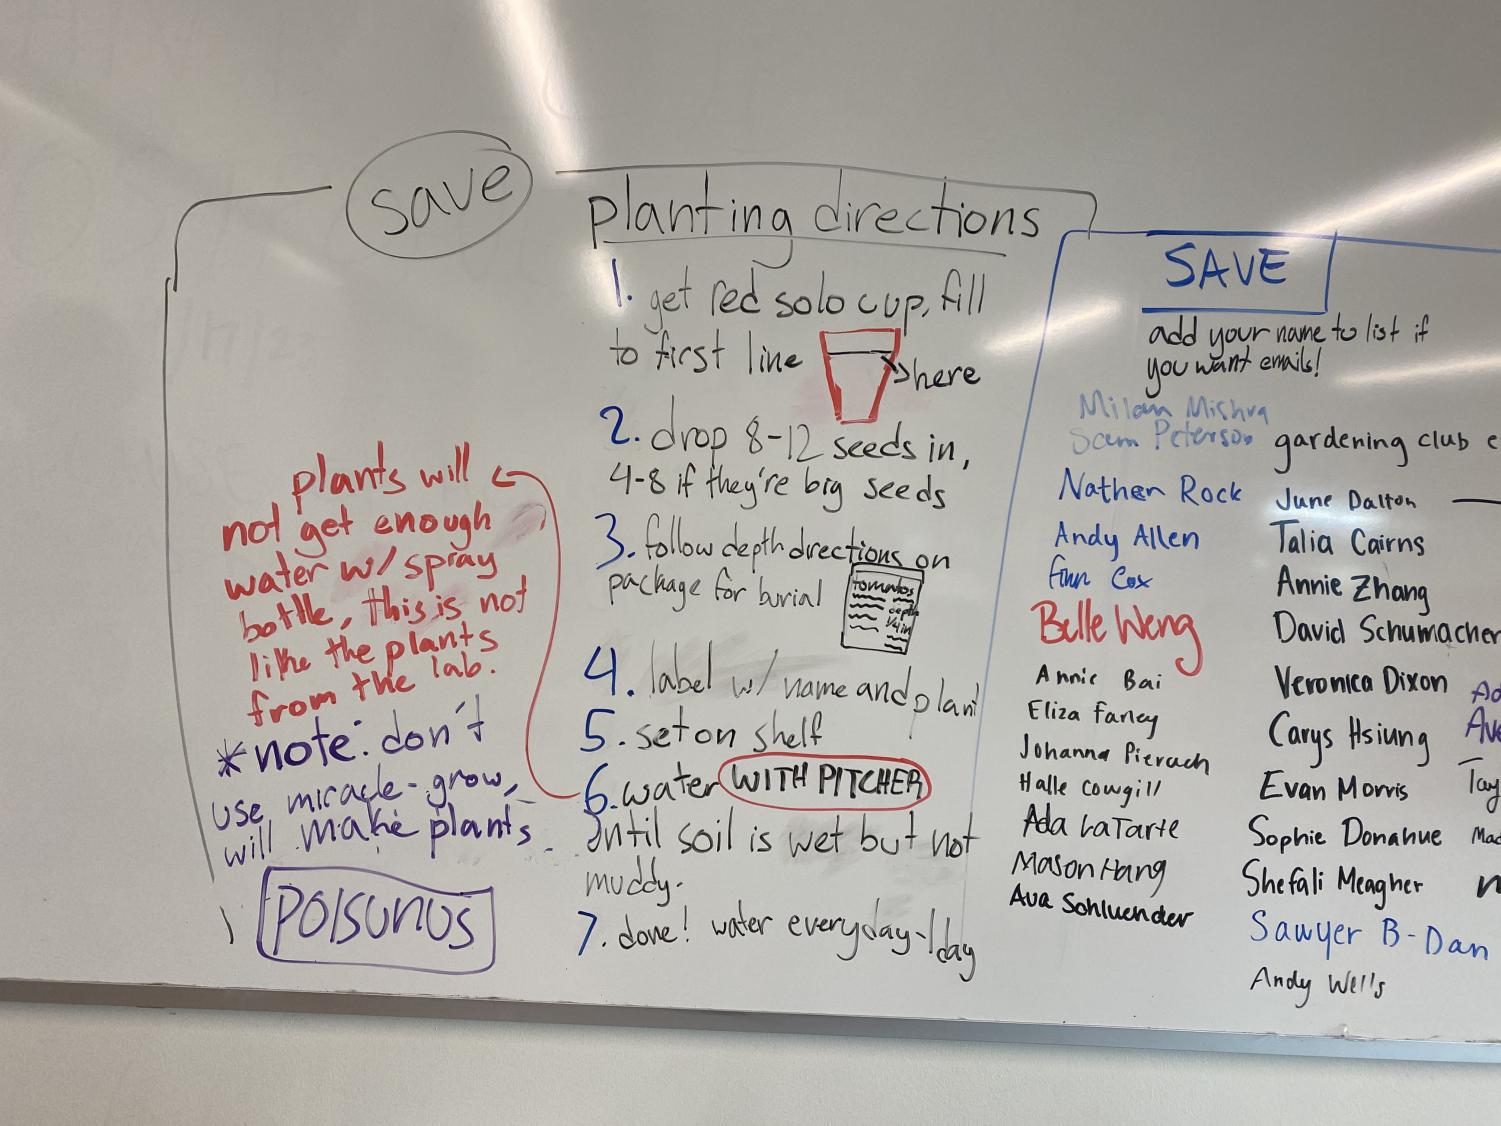 save
planting directions
1. get red solo cup, fill
to first line
here
2. drop 8-12 seeds in,
4-8 if they're big seeds
3. follow depth directions on
package for burial
tomatos
depth
1/4 in
4. label w/ name and plant
5. set on shelf
6. water WITH PITCHER
until soil is wet but not
muddy.
7. done! water everyday-1 day
plants will
not get enough
water w/ spray
bottle, this is not
like the plants
from the lab.
*note: don't
use miracle-grow,
will make plants
POISUNUS
SAVE
add your name to list if
you want emails!
Milan Mishra
Sam Peterson
Nathan Rock
Andy Allen
Finn Cox
Belle Weng
Annie Bai
Eliza Farley
Johanna Pierach
Halle Cowgill
Ada LaTarte
Mason Hang
Ava Sohluender
gardening club e
June Dalton
Talia Cairns
Annie Zhang
David Schumacher
Veronica Dixon
Carys Hsiung
Evan Morris
Sophie Donahue
Shefali Meagher
Sawyer B-Dan
Andy Wells
Ad
Ave
Tay
Mac